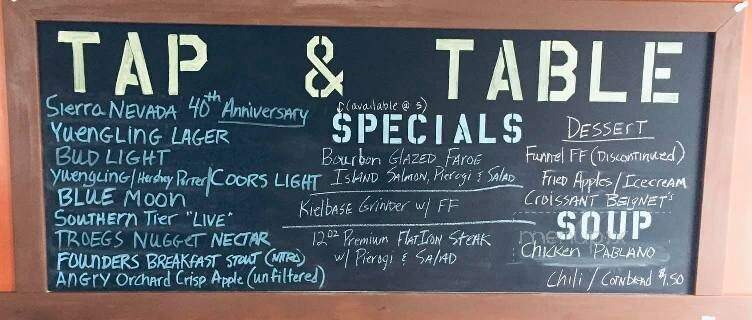 TAP & TABLE
Sierra NEVADA 40th Anniversary
YUENGLING LAGER
BUD LIGHT
Yuengling/Hershey Porter/COORS LIGHT
BLUE MOON
SOUTHERN TIER "LIVE"
TROEGS NUGGET NECTAR
FOUNDERS BREAKFAST STOUT (NITRO)
ANGRY Orchard Crisp Apple (unfiltered)
(available @ 5)
SPECIALS
Bourbon GLAZED FAROE
ISLAND SALMON, Pierogi & SALAD
Kielbase Grinder w/ FF
12oz Premium FLATIRON STEAK
w/ Pierogi & SALAD
DESSERT
Funnel FF (Discontinued)
FRIED Apples/Icecream
CROISSANT BEIGNET'S
SOUP
Chicken PABLANO
Chili / Cornbread $1.50